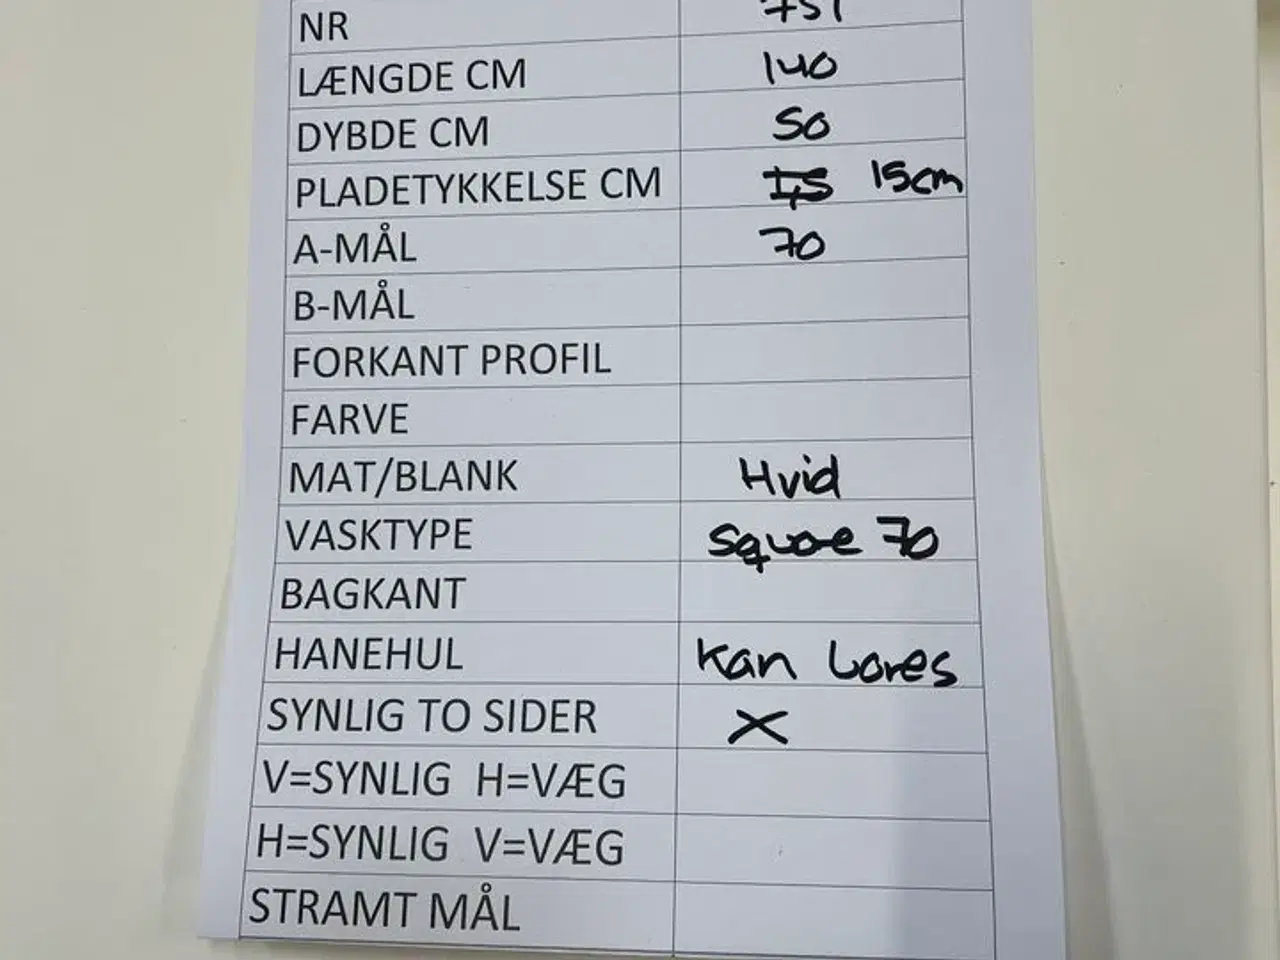 NR 751
LÆNGDE CM 140
DYBDE CM 50
PLADETYKKELSE CM 15cm
A-MÅL 70
B-MÅL
FORKANT PROFIL
FARVE
MAT/BLANK Hvid
VASKTYPE Square 70
BAGKANT
HANEHUL Kan bores
SYNLIG TO SIDER X
V=SYNLIG H=VÆG
H=SYNLIG V=VÆG
STRAMT MÅL